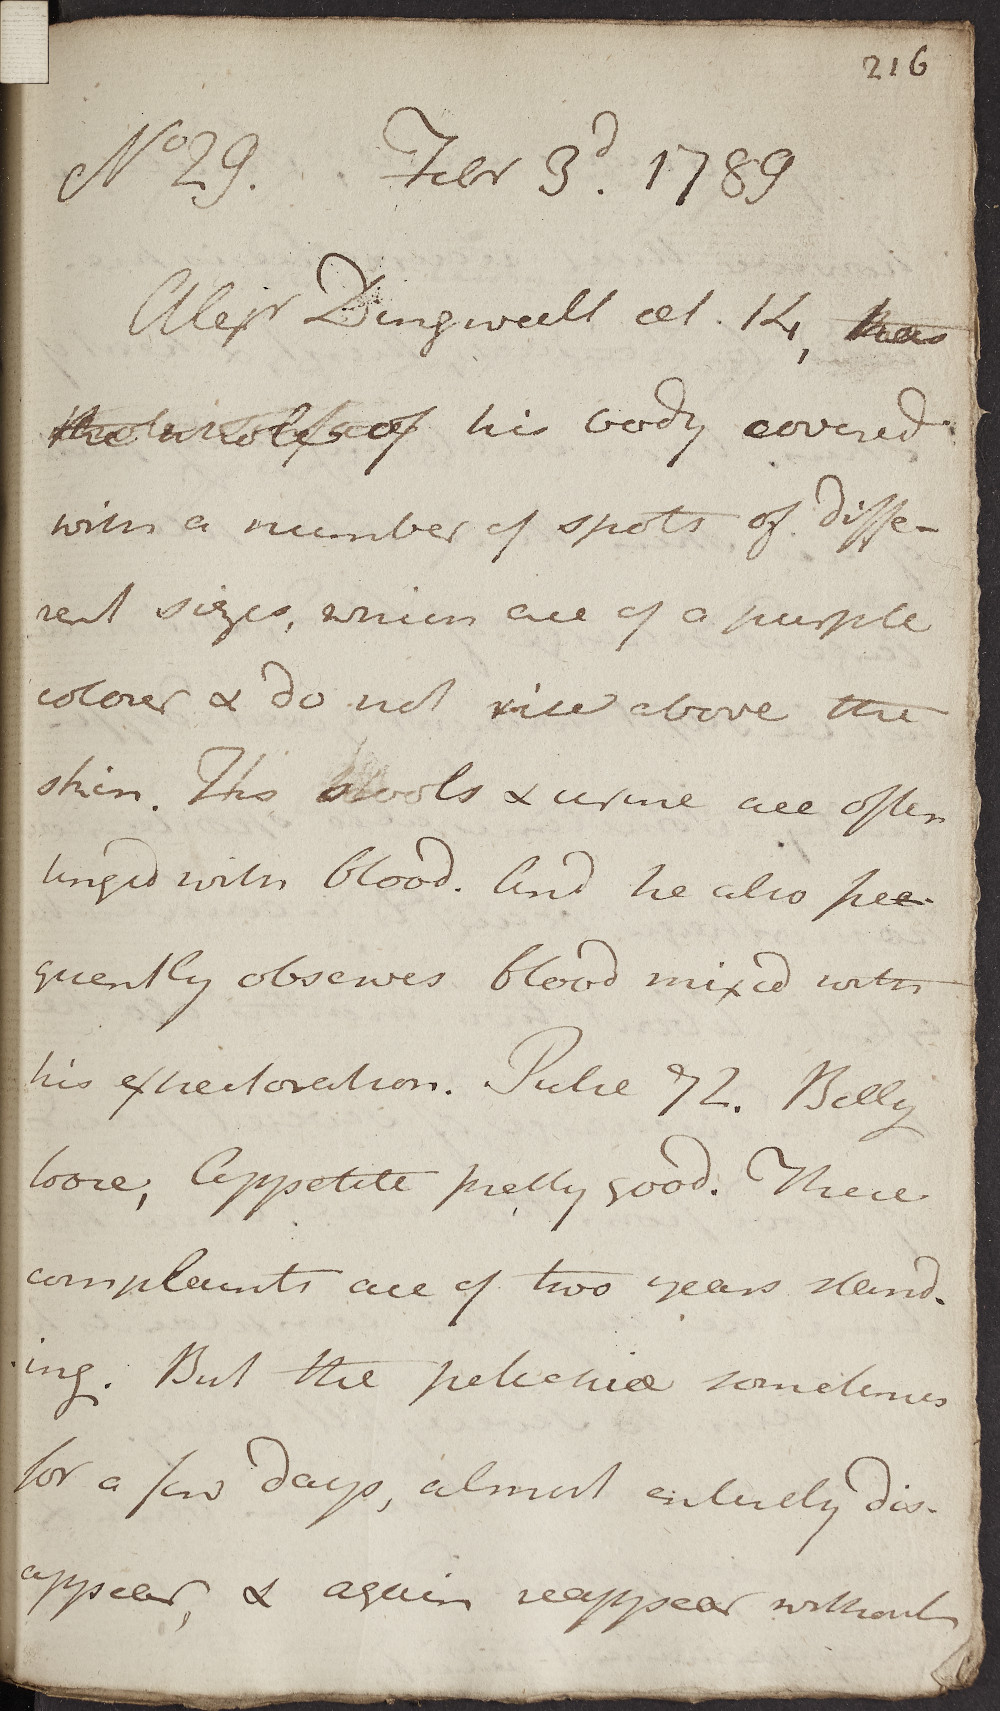 216
No 29. Febr 3d. 1789
Alexr Dingwall æt. 14, has
the whole of his body covered
with a number of spots of diffe-
rent sizes, which are of a purple
colour & do not rise above the
skin. His stools & urine are often
tinged with blood. And he also fre-
quently observes blood mixed with
his expectoration. Pulse 72. Belly
loose, Appetite pretty good. These
complaints are of two years stand-
ing. But the petechiæ sometimes
for a few days, almost entirely dis-
appear, & again reappear without